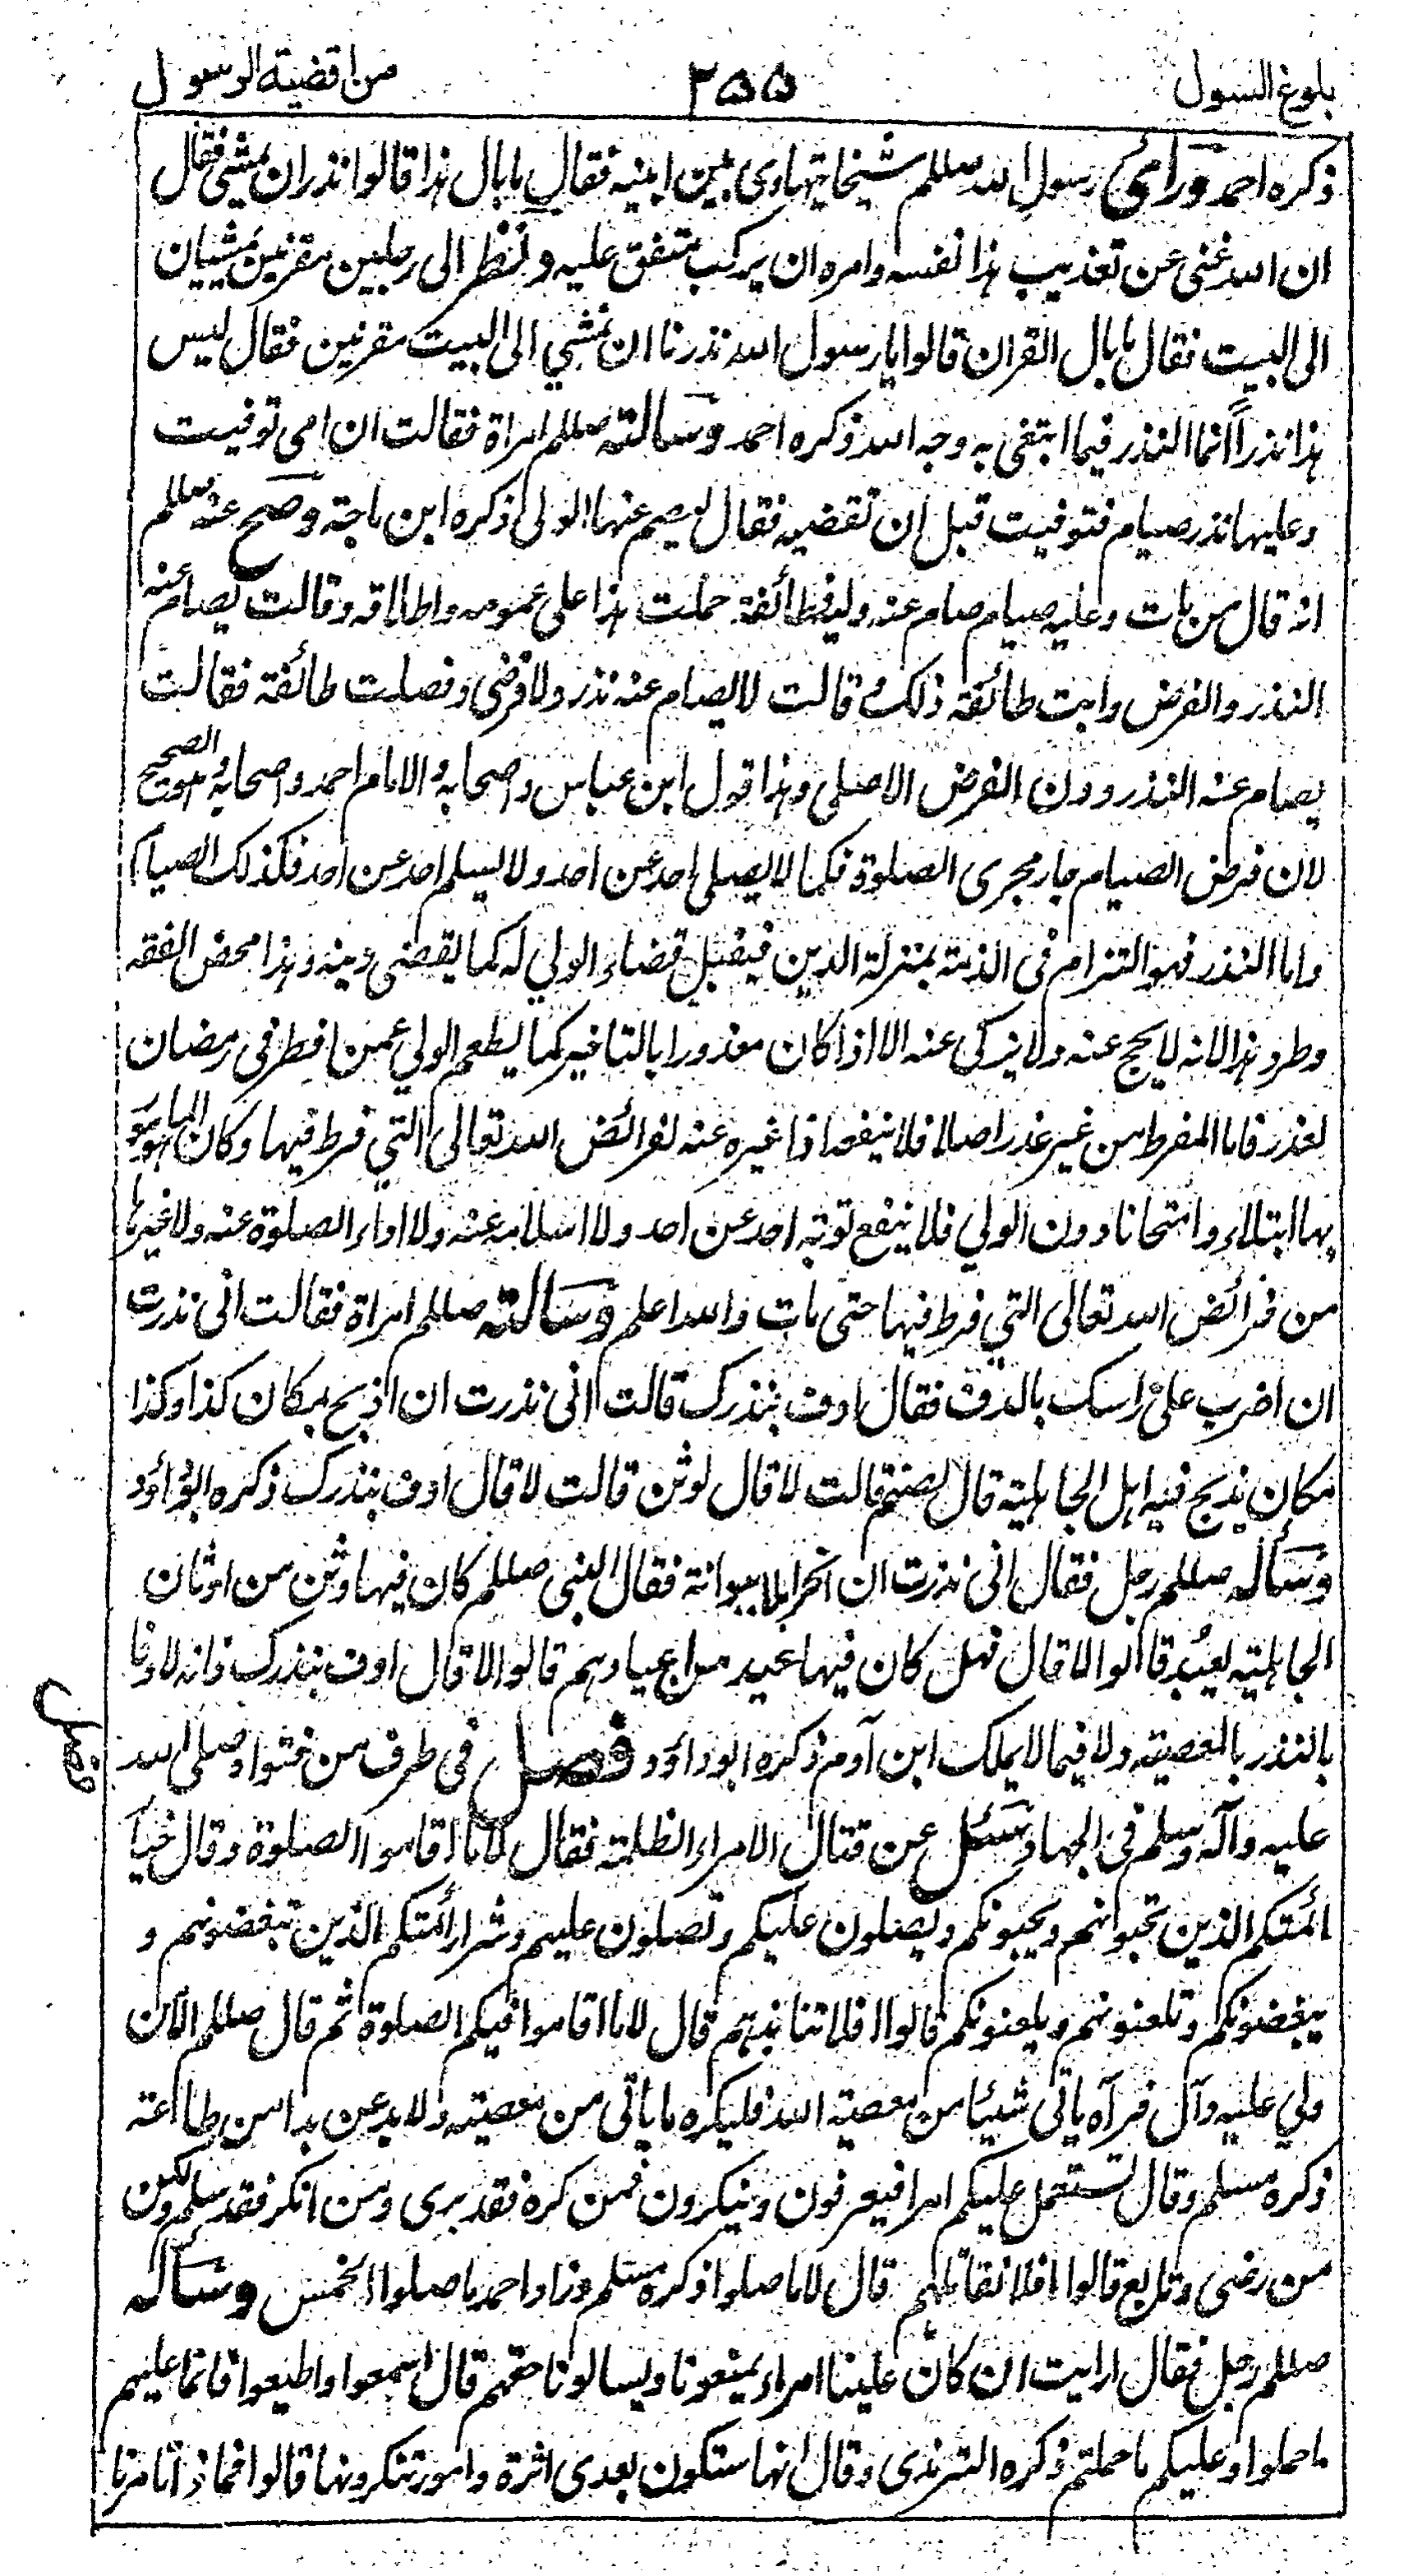 بلوغ السول ٢٥٥ من اقضية الرسول
ذكره احمد ورأى رسول الله صللم شيخا يتهادى بين ابنيه فقال ما بال هذا قالوا نذر ان يمشي فقال
ان الله غني عن تعذيب هذا نفسه وامره ان يركب متفق عليه ونظر الى رجلين مقرنين يمشيان
الى البيت فقال ما بال القران قالوا يا رسول الله نذرنا ان نمشي الى البيت مقرنين فقال ليس
هذا نذراً انما النذر فيما ابتغى به وجه الله ذكره احمد وسالته صللم امراة فقالت ان امى توفيت
وعليها نذر صيام فتوفيت قبل ان تقضيه فقال ليصم عنها الولي ذكره ابن ماجة وصح عنه صللم
انه قال من مات وعليه صيام صام عنه وليه فطائفة حملت هذا على عمومه واطلاقه وقالت يصام عنه
النذر والفرض وابت طائفة ذلك وقالت لا يصام عنه نذر ولا فرض وفصلت طائفة فقالت
يصام عنه النذر دون الفرض الاصلي وهذا قول ابن عباس واصحابه والامام احمد واصحابه وهو الصحيح
لان فرض الصيام جار مجرى الصلوة فكما لا يصلى احد عن احد ولا يسلم احد عن احد فكذلك الصيام
واما النذر فهو التزام فى الذمة بمنزلة الدين فيقبل قضاء الولي له كما يقضى دينه وهذا محض الفقه
وطرد هذا لانه لا يحج عنه ولا يزكى عنه الا اذا كان معذورا بالتاخير كما يطعم الولي عمن افطر فى رمضان
لعذر فاما المفرط من غير عذر اصلا فلا ينفعه اذا غيره عنه لفرائض الله تعالى التي فرط فيها وكان هو المامور
بها ابتلاء وامتحانا دون الولي فلا ينفع توبة احد عن احد ولا اسلامه عنه ولا اداء الصلوة عنه ولا غيرها
من فرائض الله تعالى التي فرط فيها حتى مات والله اعلم وسالته صللم امراة فقالت انى نذرت
ان اضرب على راسك بالدف فقال اوف بنذرك قالت انى نذرت ان اذبح بمكان كذا وكذا
مكان يذبح فيه اهل الجاهلية قال لصنم قالت لا قال لوثن قالت لا قال اوف بنذرك ذكره ابوداؤد
وسأله صللم رجل فقال انى نذرت ان انحر ابلا ببوانة فقال النبي صللم كان فيها وثن من اوثان
الجاهلية يعبد قالوا لا قال فهل كان فيها عيد من اعيادهم قالوا لا قال اوف بنذرك فانه لا وفا
بالنذر بالمعصية ولا فيما لا يملك ابن آدم ذكره ابوداؤد فصل فى طرف من فتواه صلى الله
فصل
عليه وآله وسلم فى الجهاد سئل عن قتال الامراء الظلمة فقال لا ما اقاموا الصلوة وقال خيار
ائمتكم الذين تحبونهم ويحبونكم ويصلون عليكم وتصلون عليهم وشرار ائمتكم الذين تبغضونهم و
يبغضونكم وتلعنونهم ويلعنونكم قالوا افلا ننابذهم قال لا ما اقاموا فيكم الصلوة ثم قال صللم الا من
ولي عليه وآل فرآه ياتى شيئا من معصية الله فليكره ما ياتى من معصيته ولا ينزعن يدا من طاعته
ذكره مسلم وقال يستعمل عليكم امرا فيعرفون وينكرون فمن كره فقد برى ومن انكر فقد سلم ولكن
من رضى وتابع قالوا افلا نقاتلهم قال لا ما صلوا ذكره مسلم وزاد احمد ما صلوا الخمس وسأله
صللم رجل فقال ارايت ان كان علينا امراء يمنعونا ويسالونا حقهم قال اسمعوا واطيعوا فانما عليهم
ما حملوا وعليكم ما حملتم ذكره الترمذى وقال انها ستكون بعدى اثرة وامور تنكرونها قالوا فماذا تامرنا